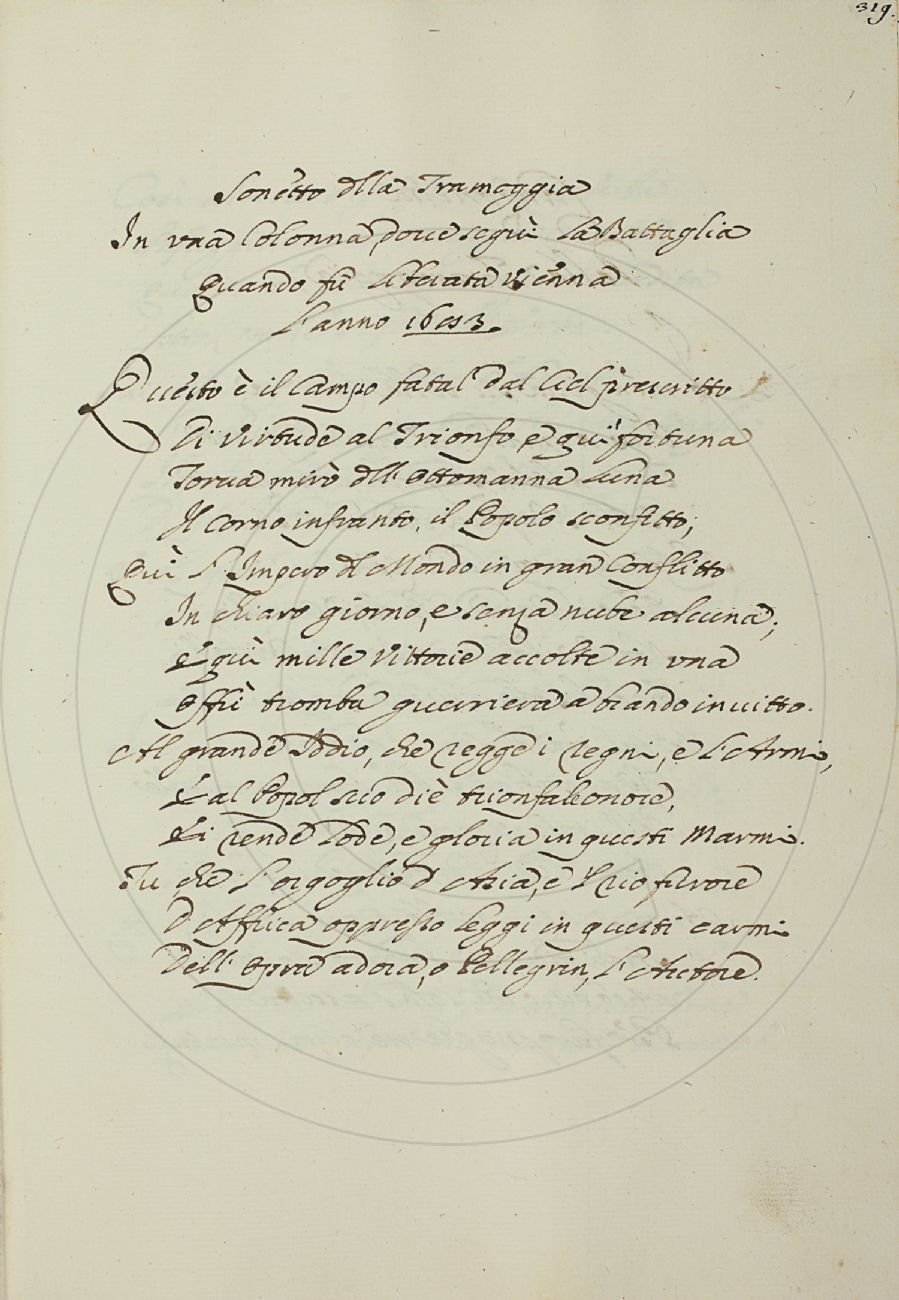 319.
Sonetto dlla Tramoggia
In vna Colonna, doue seguì La Battaglia
Quando fù Liberata Vienna
L'anno 1683.
Questo è il Campo fatal dal Ciel prescritto
Di Virtude al Trionfo e quì fortuna
Torua mirò dell' Ottomanna Luna
Il Corno infranto, il Popolo sconfitto,
Quì L'Impero dl Mondo in gran Conflitto
In chiaro giorno, e senza nube alcuna,
E quì mille Vittorie accolte in vna
Offrì tromba guerriera a brando inuitto.
Al grande Iddio, che regge i regni, e L'Armi,
E al Popol suo diè trionfale onore,
Si rende Lode, e gloria in questi Marmi.
Tu che L'orgoglio d'Asia, e 'l rio furore
D'Affrica oppresso Leggi in questi carmi
Dell' Opra adora, o Pellegrin, L'Autore.